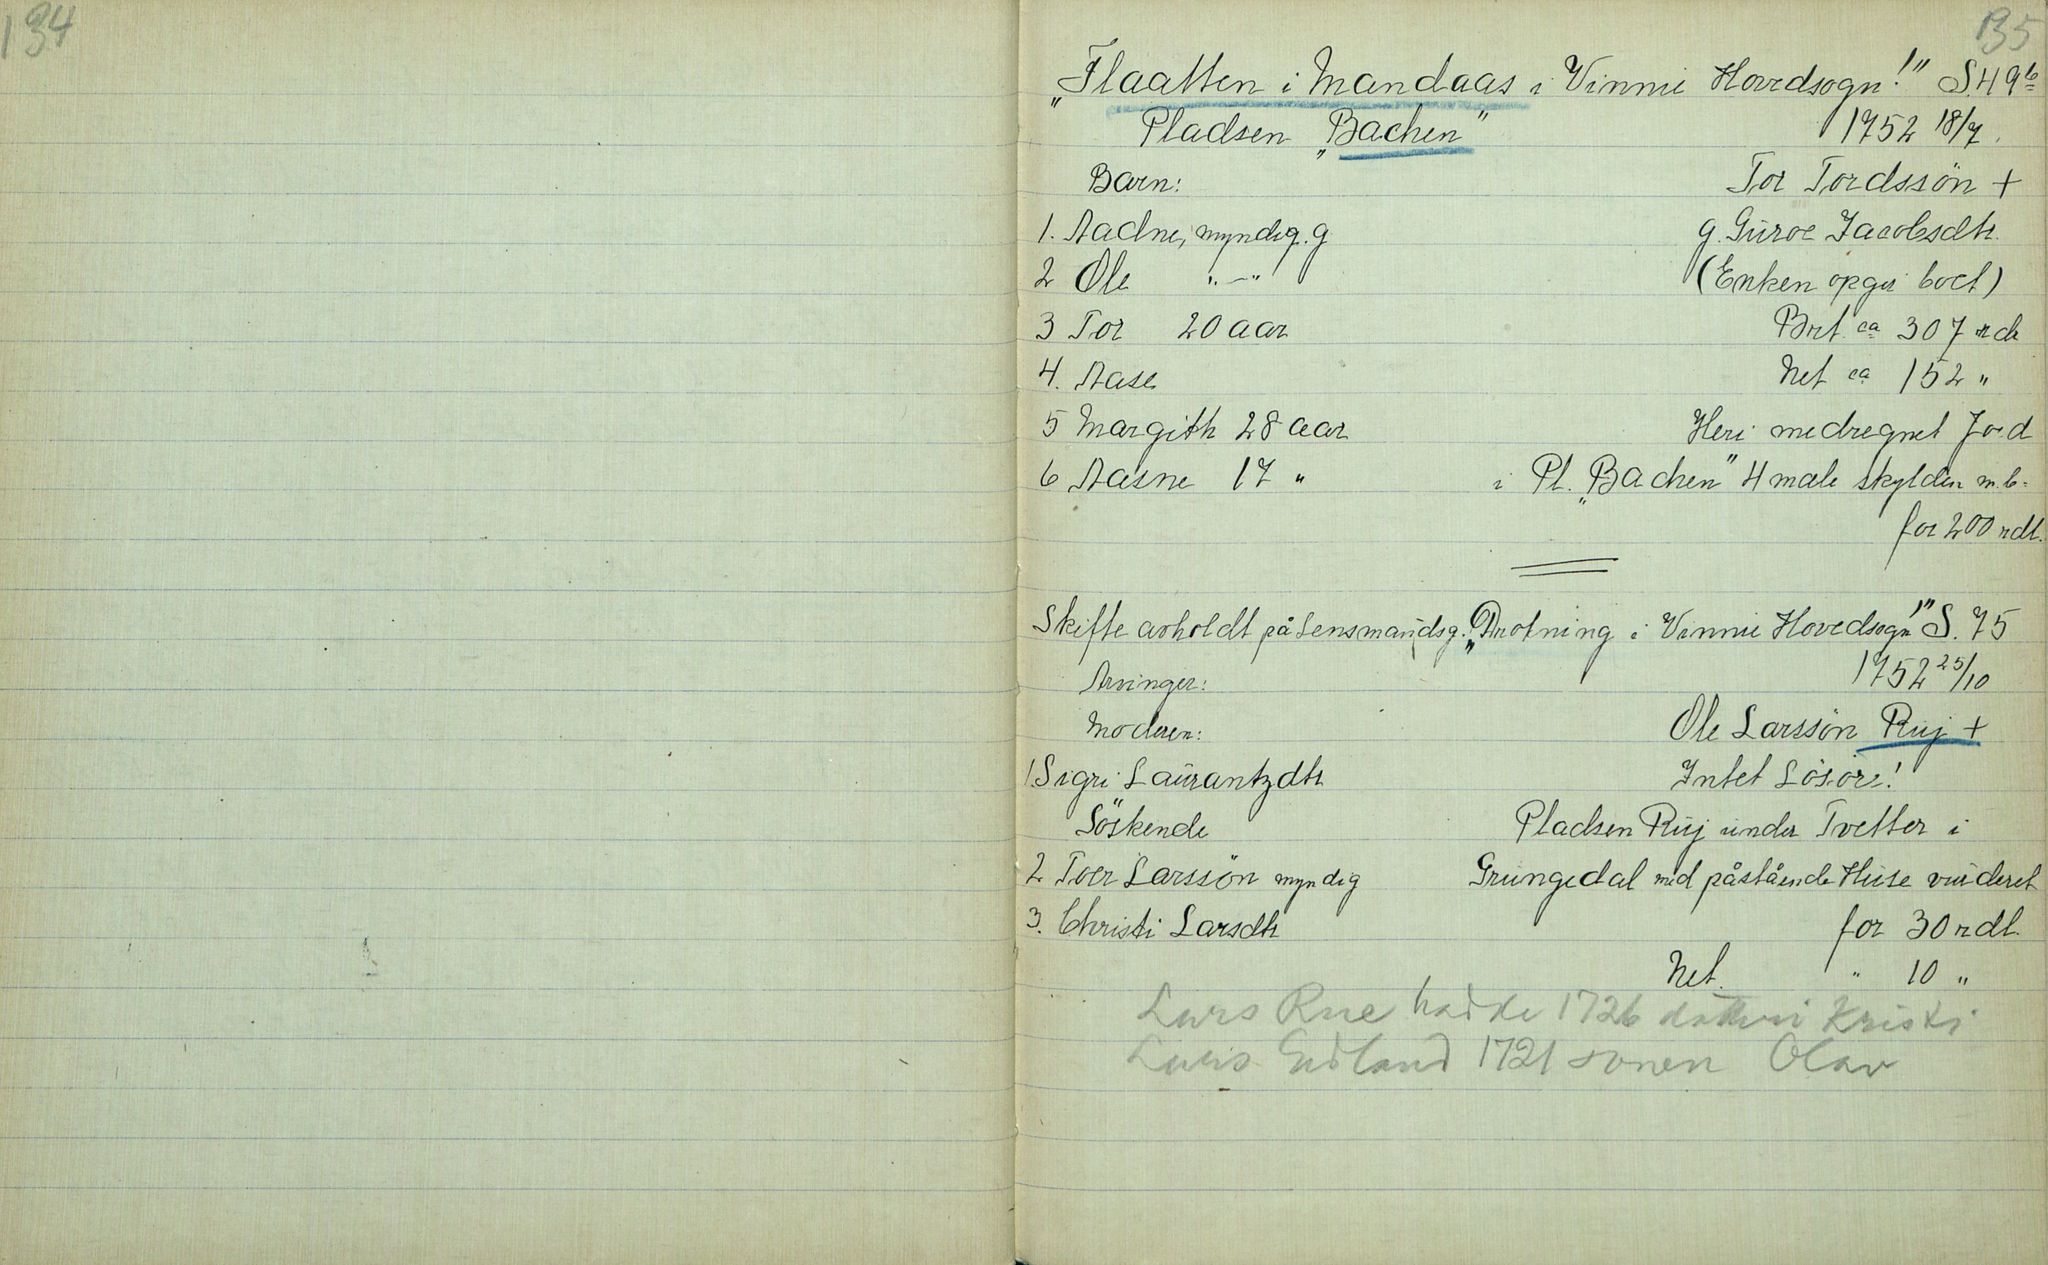 134
135
„Flaatten i Mandaas i Vinnie Hovedsogn!" S.49b
Pladsen „Bachen" 1752 18/7.
Barn: Tor Tordssön +
1. Aadne, myndig. g g. Guroe Jacobsdtr.
2 Ole "—" (Enken opgir boet)
3 Tor 20 aar Brt. ca 307 rdl
4. Aase Net ca 152 "
5 Margith 28 aar Heri medregnet Jord
6 Aasne 17 " i Pl. „Bachen" 4 mæle skylden m.b.
for 200 rdl.
Skifte avholdt på Lensmandsg. „Drotning i Vinnie Hovedsogn!" S. 75
Arvinger: 1752 25/10
Moderen: Ole Larssön Ruj +
1. Sigri Laurantzdtr Intet Lösöre!
Söskende Pladsen Ruj under Tvetter i
2 Toer Larssön myndig Grungedal med påstående Huse vurderet
3. Christi Larsdtr for 30 rdl.
Net. " 10 "
Lars Rue hadde 1726 dotteri Kristi
Lars Edland 1721 sonen Olav